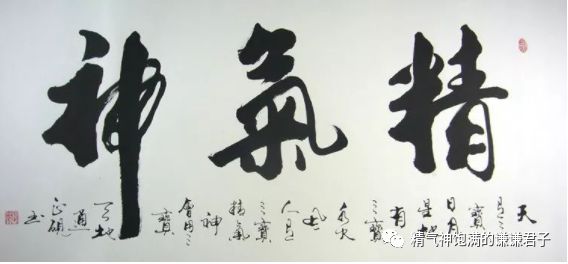 精氣神
天
有三
寶
日月
星地
有
三寶
水火
風
人有
三寶
精氣
神
會用三
寶
天地
通
正硯
书
精气神饱满的谦谦君子